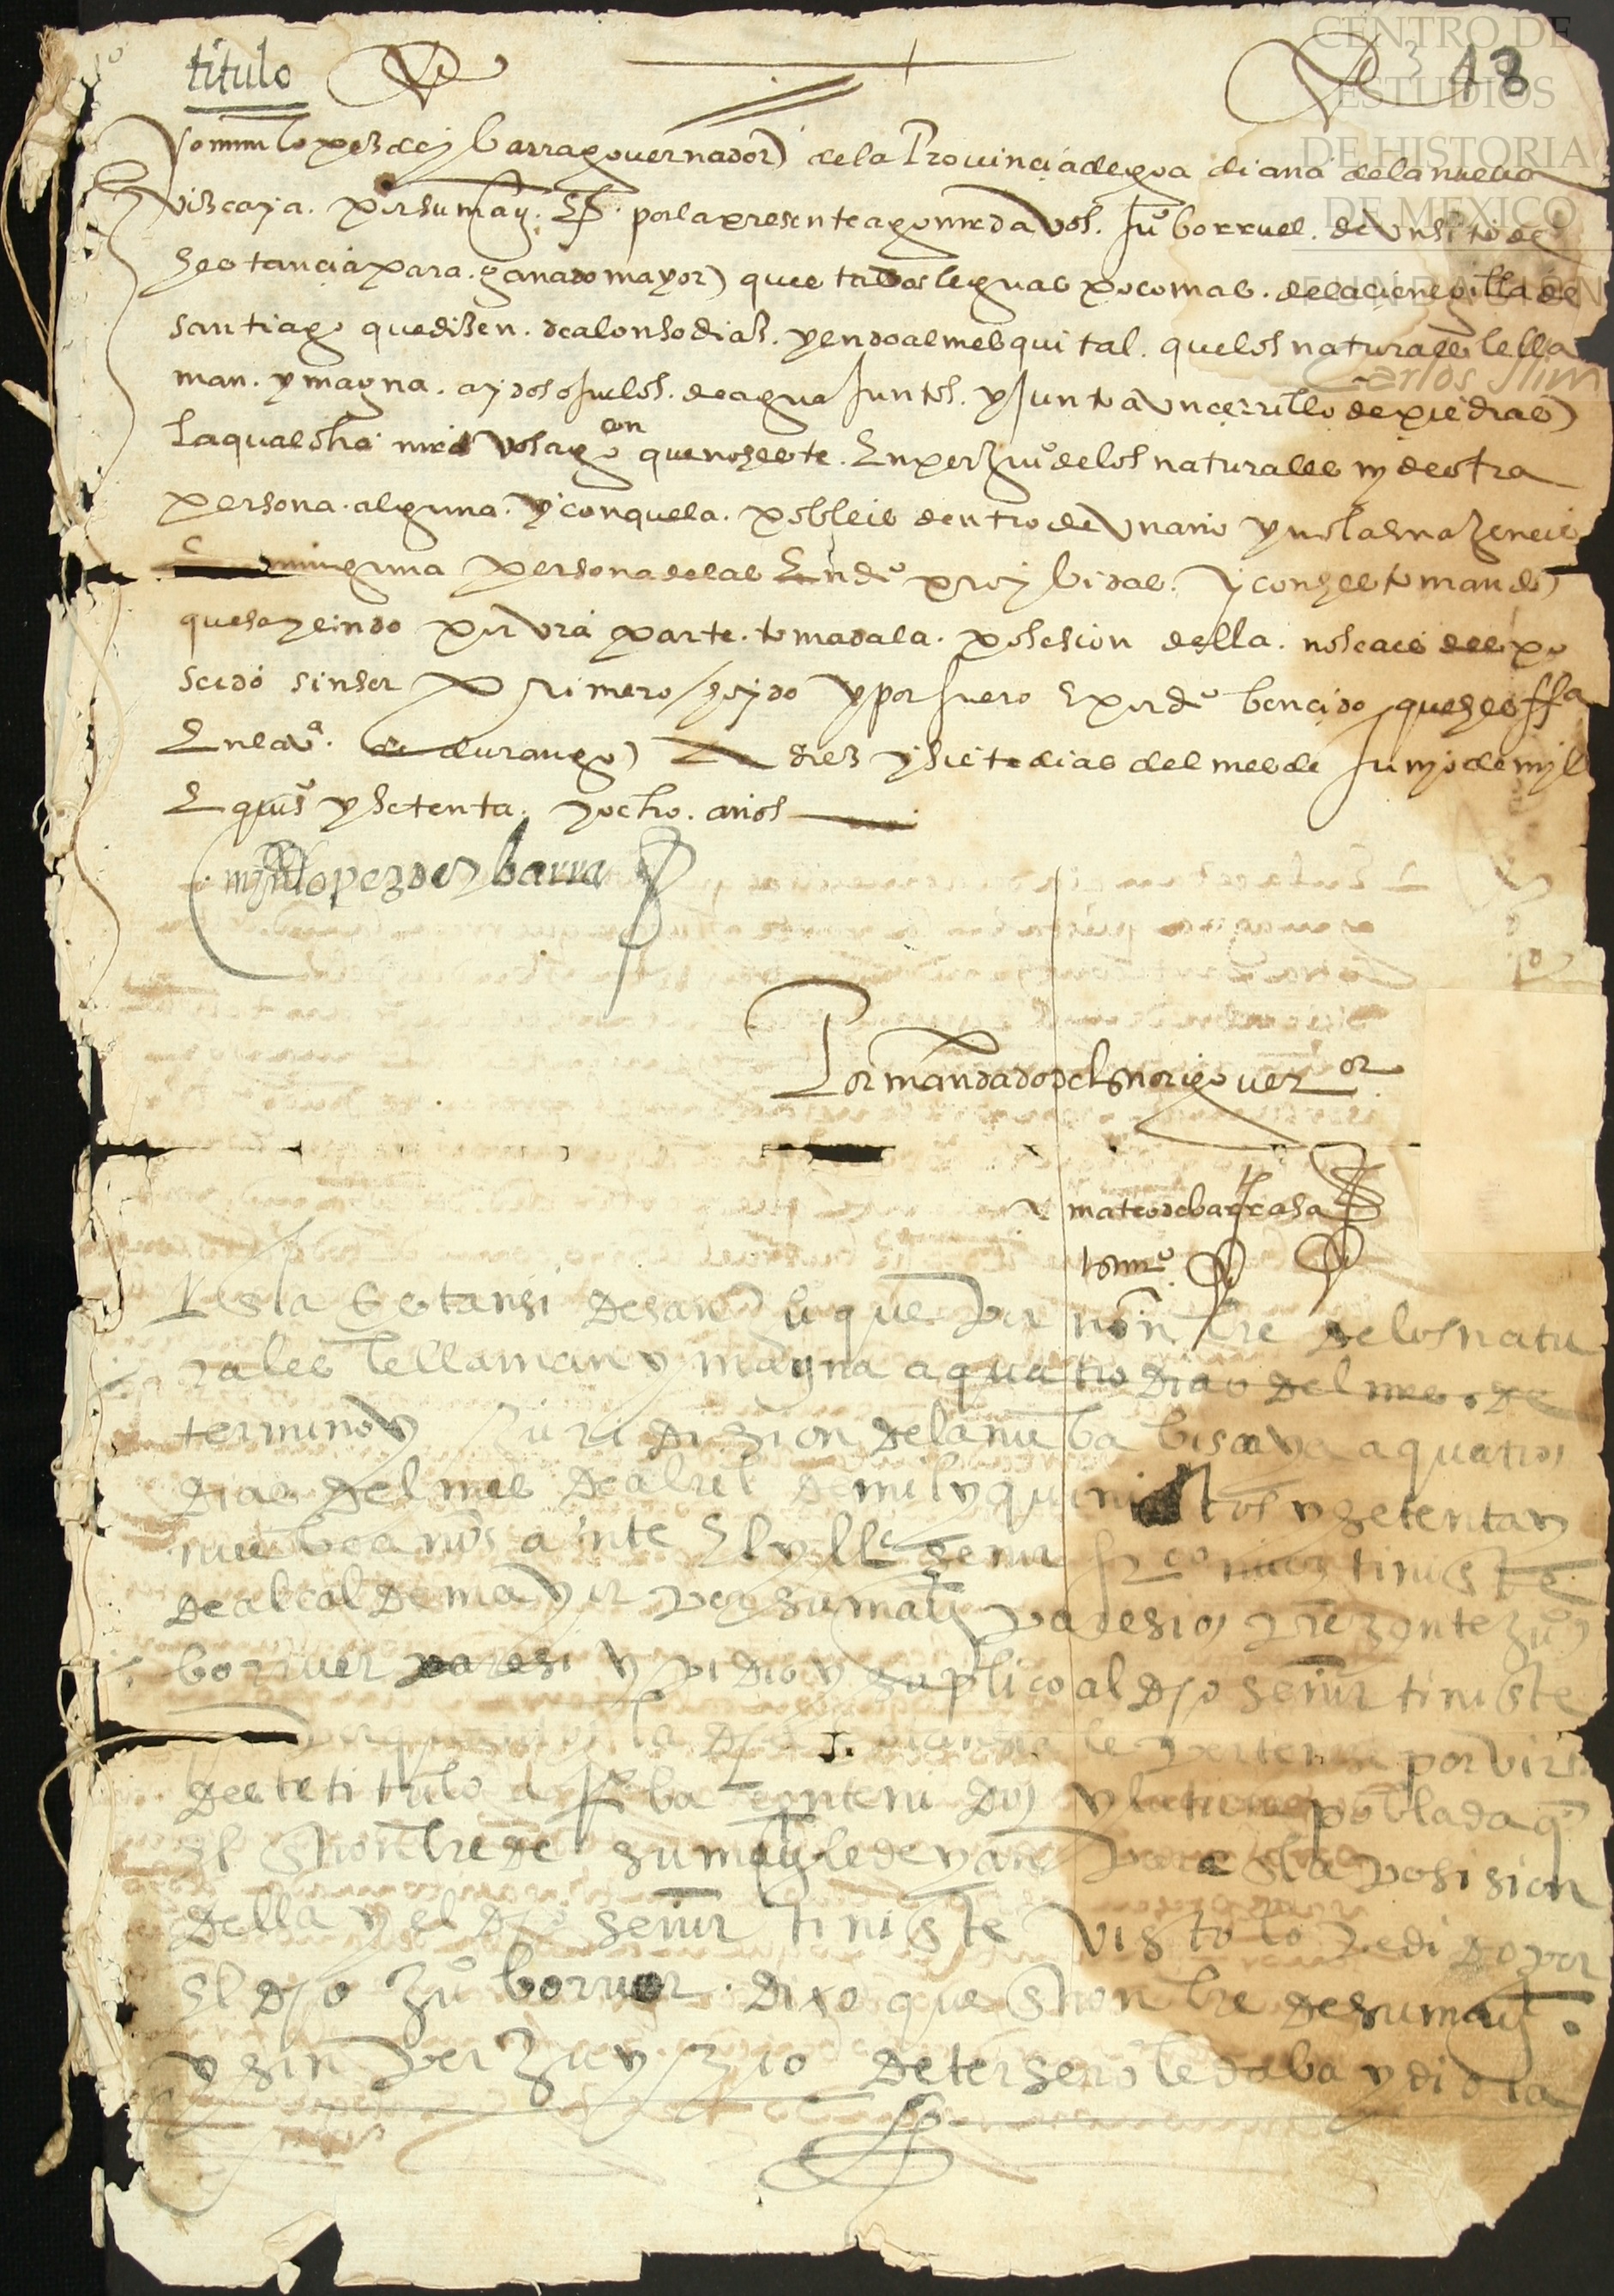 título
18
CENTRO DE
ESTUDIOS
DE HISTORIA
DE MÉXICO
FUNDACIÓN
Carlos Slim
lopez de ybarra governador de la Provincia de guadiana de la nueva
vizcaya. por su mag. por la presente ago mrd a vos. juº borruel. de un sitio de
estancia para. ganado mayor que esta dos leguas poco mas. de la cieneguilla de
santiago que dizen. de alonso diaz. yendo al mesquital. que los naturales le lla
man. ymagna. ay dos ojuelos. de agua juntos. y junto a un cerrillo de piedras
la qual dha mrd vos ago con que no sea este. En perjuº de los naturales ny de otra
persona. alguna. y con que la. pobleis dentro de un año y no la enajeneis
En ninguna persona de las En drº proybidas. y con esto mando
que haziendo por vra parte. tomada la. posesion della. no seais despo
seido sin ser primero oydo y por fuero E por drº bencido ques ffª
En la vª. de durango a diez y siete dias del mes de junyo de myl
E quisº y setenta. y ocho. años
myn lopez de ybarra
Por mandado del señor gover or
mateo de barrasa
En la estansi de san que por nonbre de los natu
rales le llaman ymagna a quatro dias del mes. de
termino y juridizion de la nueba biscaya a quatro
dias del mes de abril de mil y quinientos y setenta y
nuebe años ante El yllᵉ señor frco tiniente
de alcalde mayor por su mag paresio presente juº
borruer y pidio y suplico al dho señor tiniente
la dha estansia le pertenese por virtu
deste titulo contenido y la tiene poblada q
El nonbre de su mag le de posision
della y el dho señor tiniente visto lo pedido por
El dho juº borruer. dixo que nonbre de su mag.
y sin perjuyzio de tersero le daba y dio la